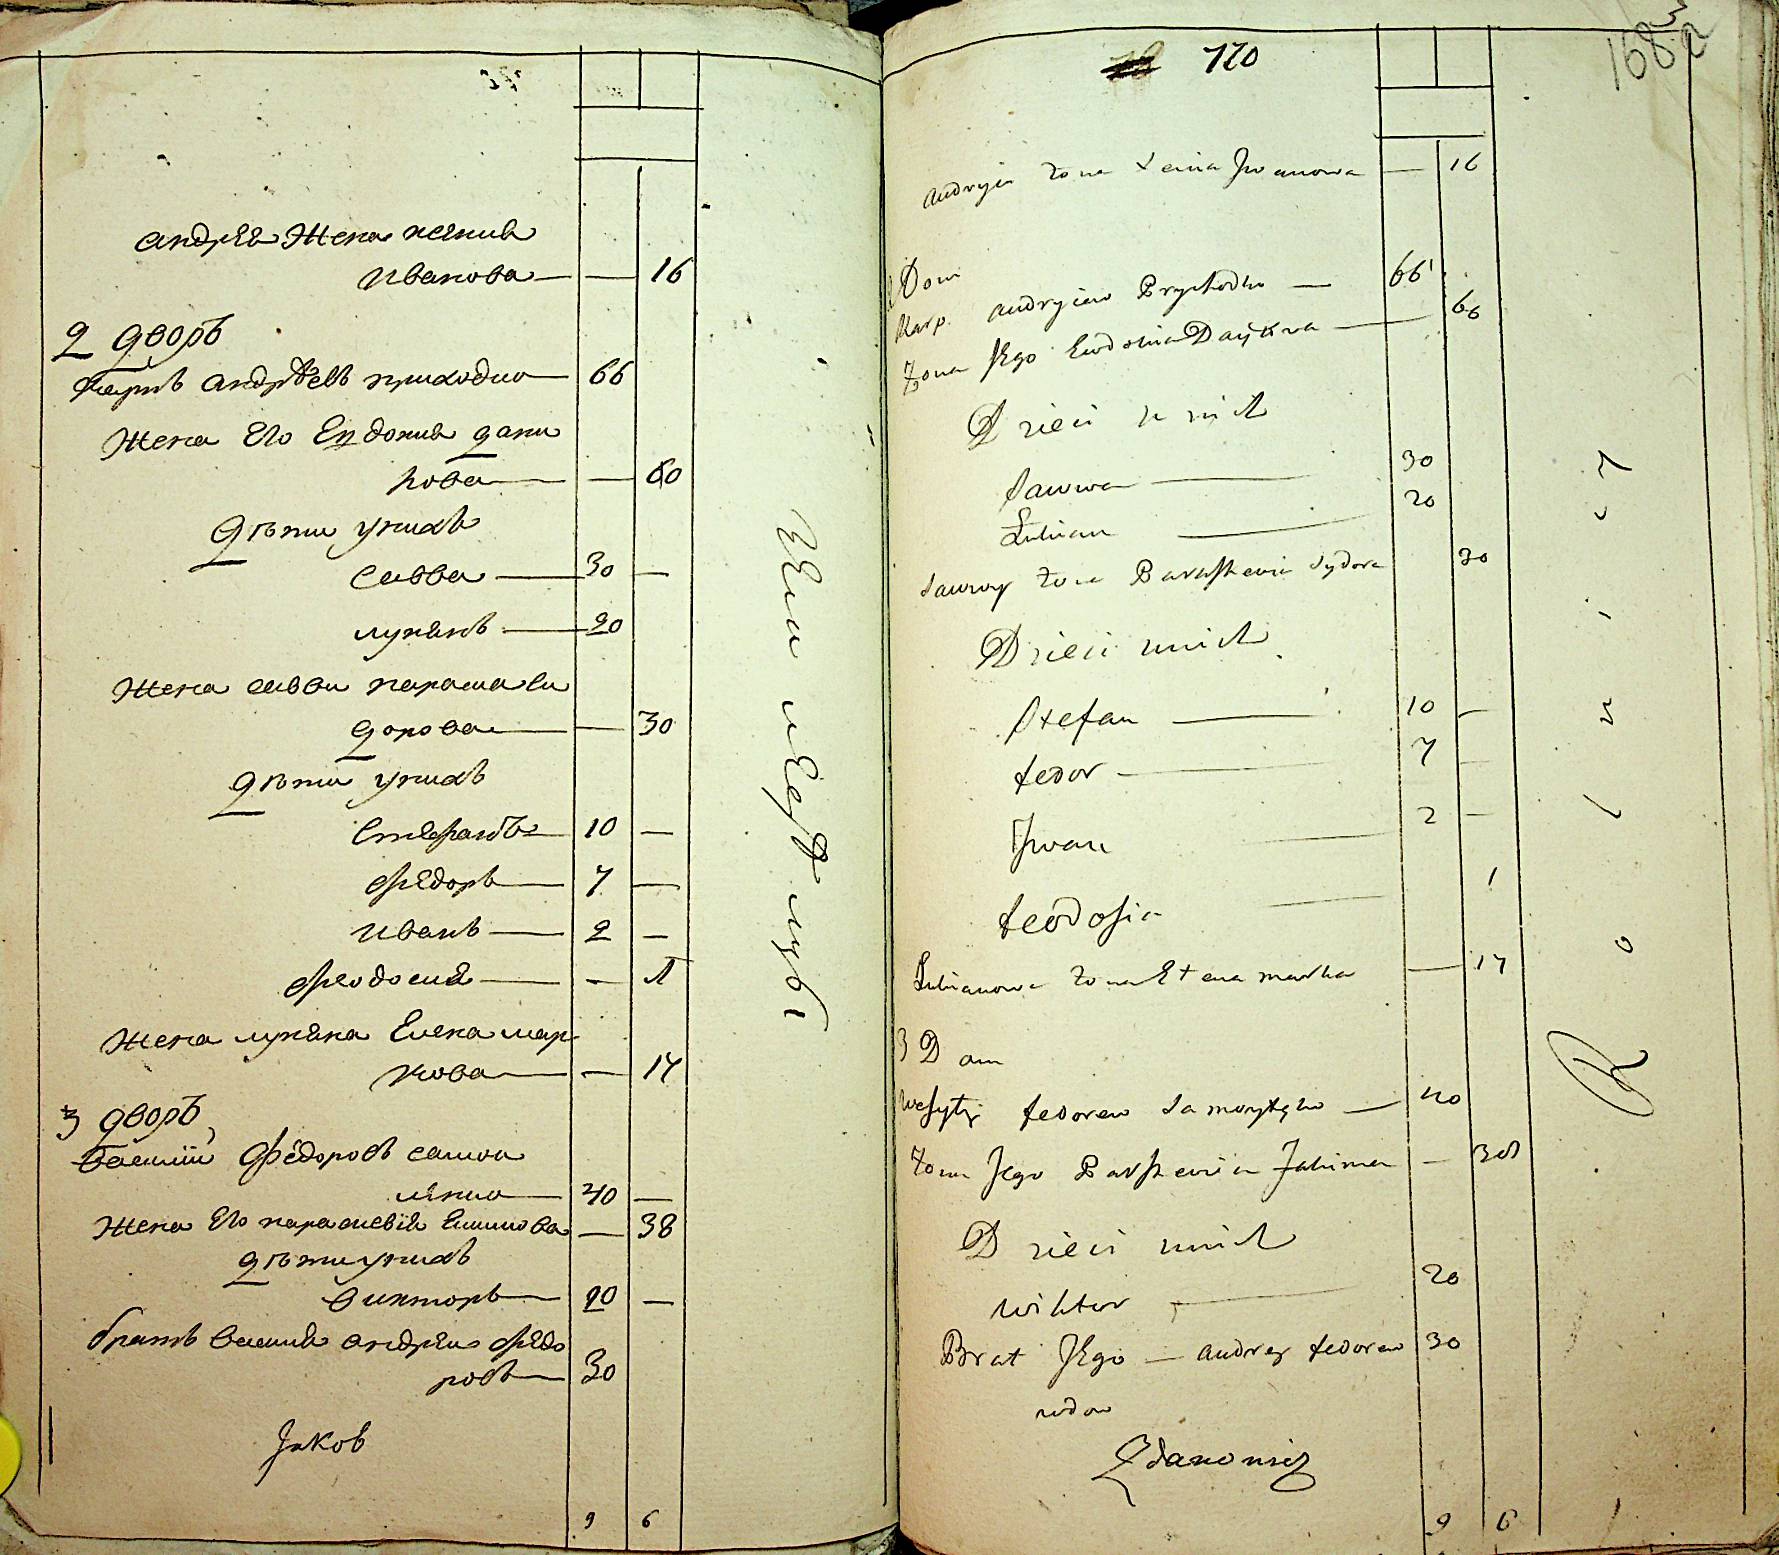 андрея жена ксения
Иванова — — 16
2 дворъ
Карпъ андрѣевъ приходко — 66
Жена Его Евдокия дани
кова — — 60
Дѣти унихъ
Савва — 30 —
лукянъ — 20
Жена саввы параска си
дорова — — 30
Дѣти унихъ
Стефанъ — 10 —
Федоръ — 7 —
Иванъ — 2 —
Феодосия — — 1
Жена лукяна Елена мар
кова — — 17
3 дворъ
Василий Федоровъ самои
ленко — 40 —
Жена Его параскевия Екимова — — 38
Дѣти унихъ
викторъ — 20 —
братъ василия андрей Федо
ровъ — 30
Jaков
9 6
Земледѣлцы
120
168
3
Andryia żona Xenia Jwanowa — 16
Dom
Karp andryiew Prychodko — 66
Żona Jego Ewdokia Daykowa — 66
Dzieci u nich
Sawwa — 30
Łukian — 20
Sawwy żona Paraskewia Sydora 30
Dzieci unich
Stefan — 10 —
fedor — 7 —
Jwan — 2 —
feodosia — 1
Łukianowa żona Elena marka — 17
3 Dom
Wasyly fedorew Samoyłęko — 40
żona Jego Paraskewia Jakimowa — 38
Dzieci unich
wiktor — 20
Brat Jego — andrey fedorow 30
wdow
Zdanowicz
9 6
Rolnicy